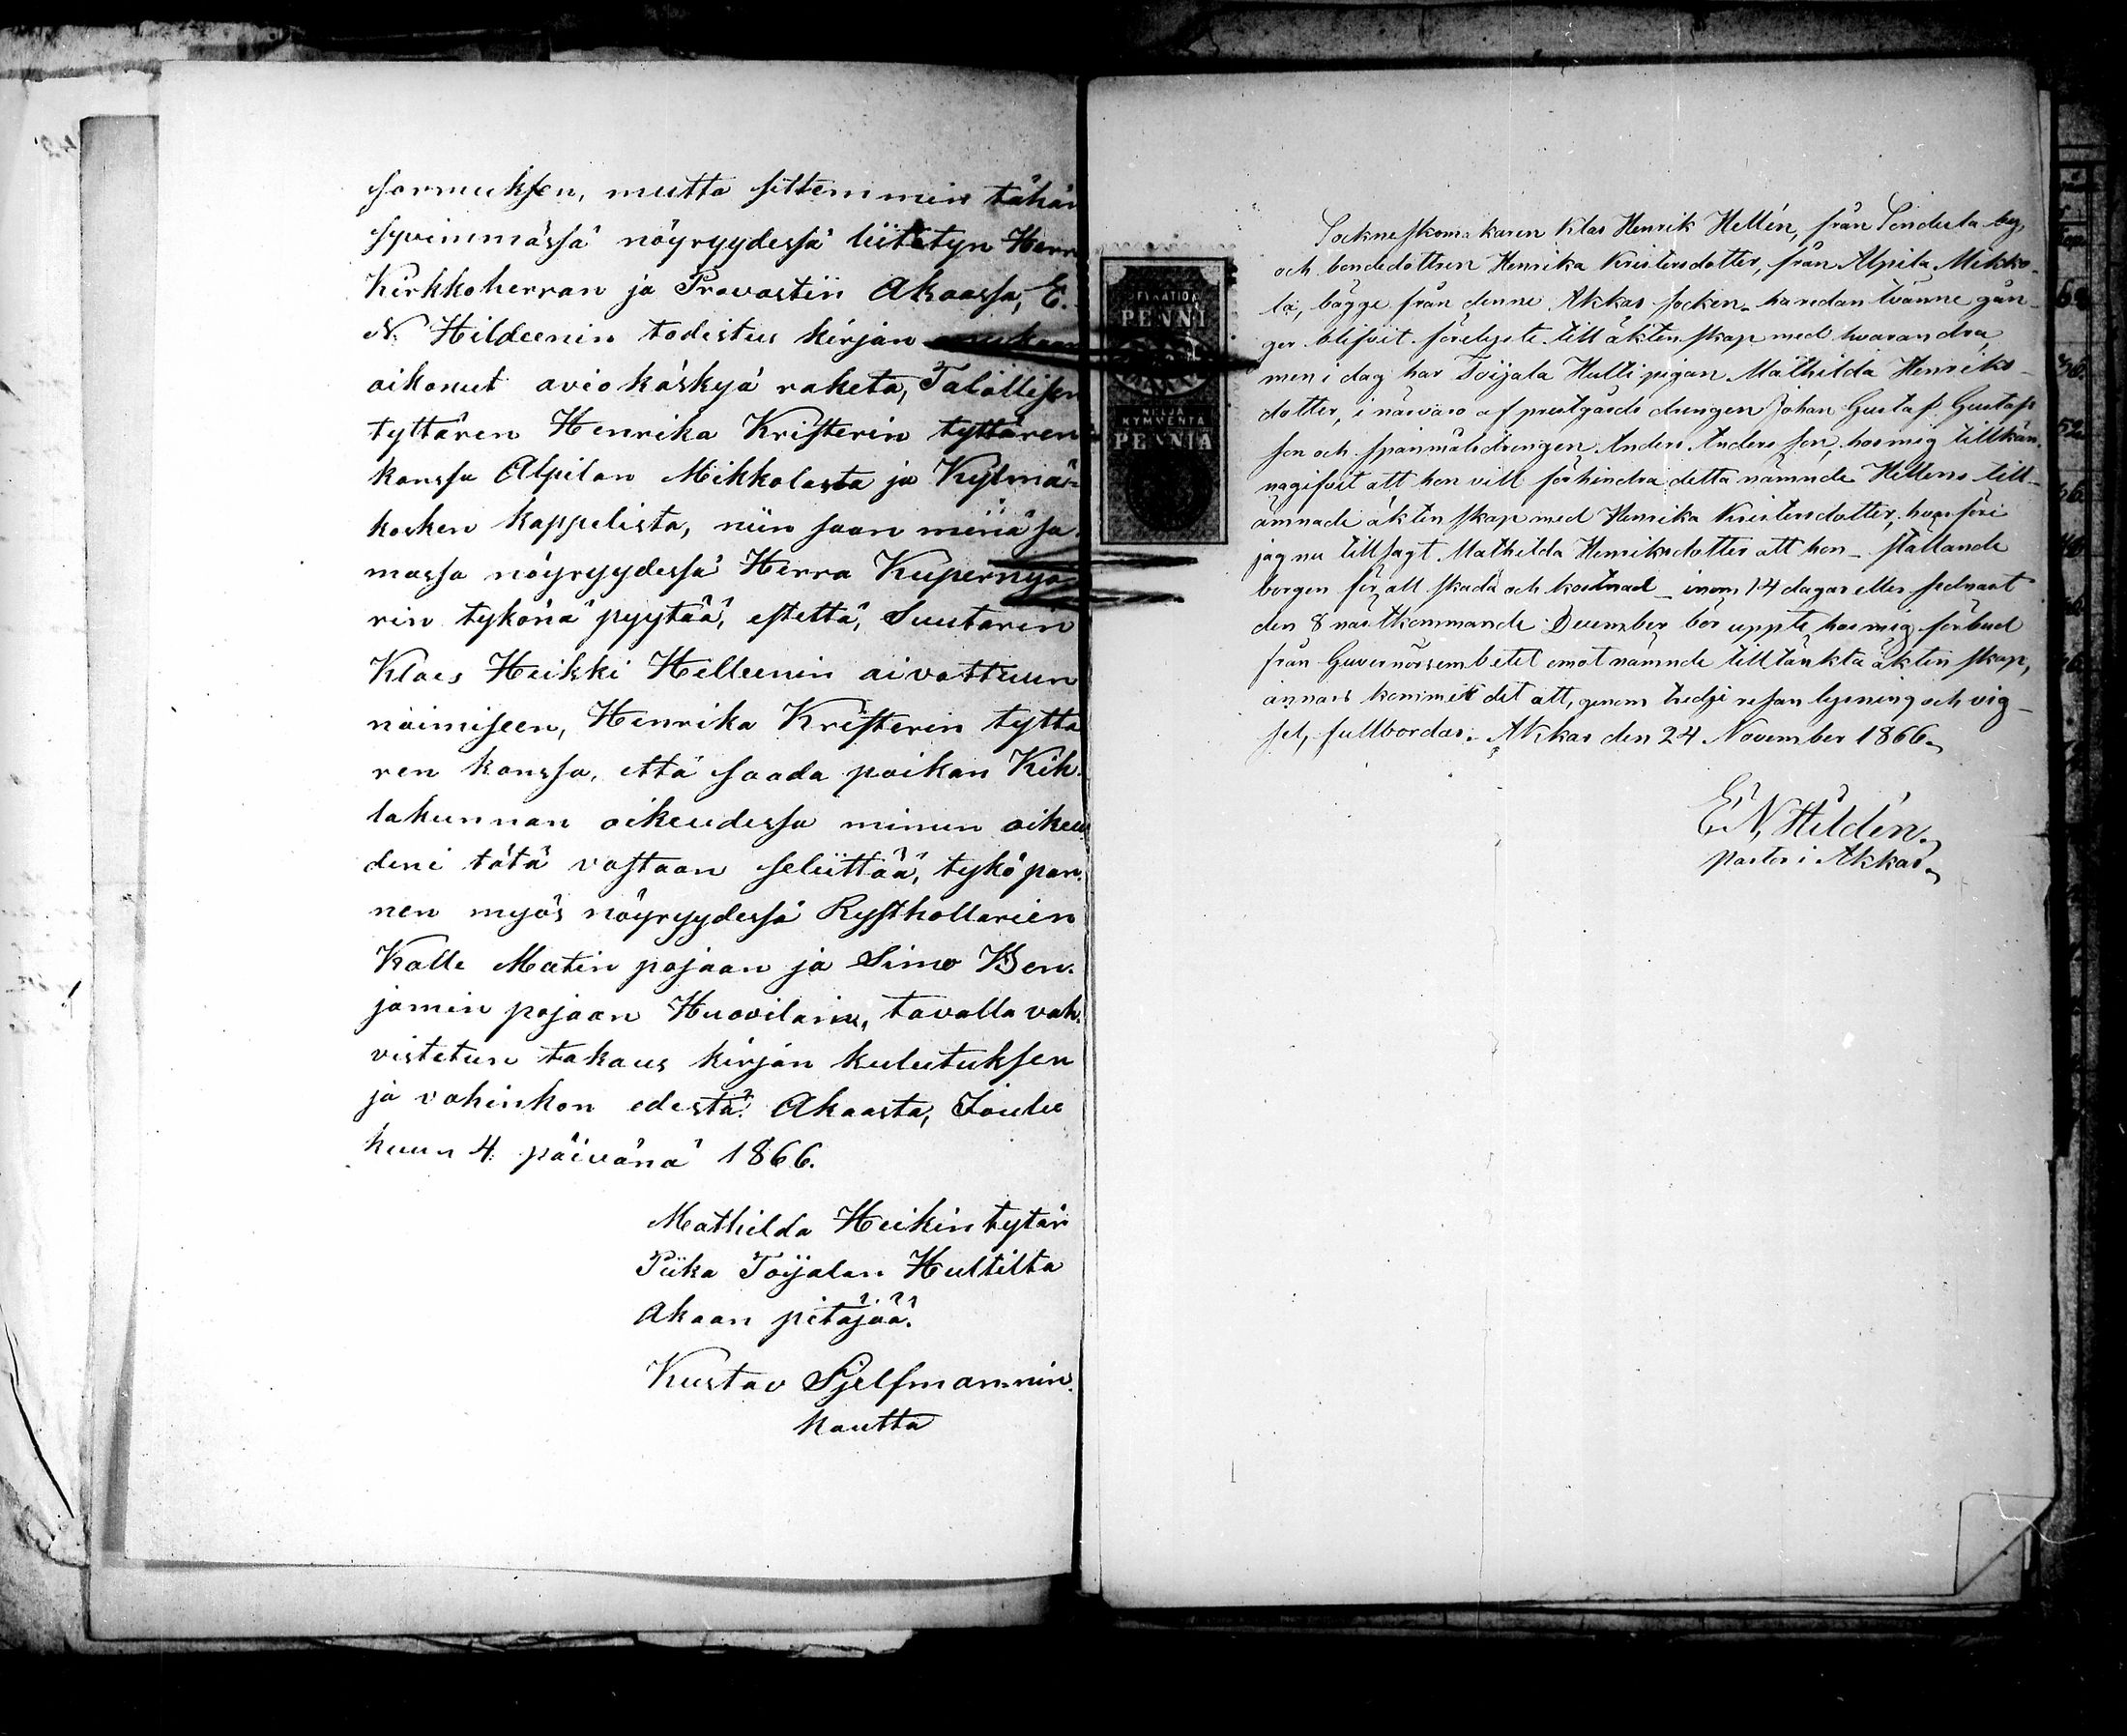 sormuksen, mutta sittemmin tähän
syvimmässä nöyryydessä liitetyn Herra
Kirkkoherran ja Provastin Akaassa, E.
N. Hildeenin todistus kirjan
aikonut avio käskyä raketa, Talollisen
tyttären Henrika Kristerin tyttären
kanssa Alpilan Mikkolasta ja Kylmä-
kosken kappelista, niin saan minä sa-
massa nöyryydessä Herra Kupernyö-
rin tykönä pyytää, estettä, Suutarin
Klaes Heikki Helleenin aivottuun
naimiseen, Henrika Kristerin tyttä
ren kanssa, että saada paikan Kih-
lakunnan oikeudessa minun oikeu-
deni tätä vastaan seliittää, tykö pan-
nen myös nöyryydessä Rysthollarien
Kalle Matin pojaan ja Simo Ben-
jamin pojaan Huovilain, tavalla vah-
vistetun takaus kirjan kulutuksen
ja vahinkon edestä. Akaasta, Joulu
kuun 4 päivänä 1866.
Mathilda Heikin tytär
Piika Toijalan Hultilta
Akaan pitäjää.
Kustav Sjelfmannin
kautta
PENNI
NELJÄ
KYMMENTÄ
PENNIÄ
Sockneskomakaren Klas Henrik Hellén, från Sondula by,
och bondedottren Henrika Kristersdotter, från Alpila Mikko-
la, bägge från denne Akkas socken, ha redan tvänne gån-
ger blifvit förelyste till äktenskap med hvarandra,
men i dag har Toijala Hulti pigan Mathilda Henriks-
dotter, i närvaro af prestgårds drengen Johan Gustaf Gustafs
son och spanmålsdrengen Anders Andersson, hos mig tillkän-
nagifvit att hon vill förhindra detta nämnde Hellens till-
ämnade äktenskap med Henrika Kristersdotter, hvarföre
jag nu tillsagt Mathilda Henriksdotter att hon - ställande
borgen för all skada och kostnad - inom 14 dagar eller sednast
den 8 nästkommande December bör uppte hos mig förbud
från Guvernörsembetet emot nämnde tilltänkta äktenskap,
annars kommer det att, genom tredje resan lysning och vig-
sel, fullbordas. Akkas den 24 November 1866.
E. N. Hildén.
pastor i Akkas.